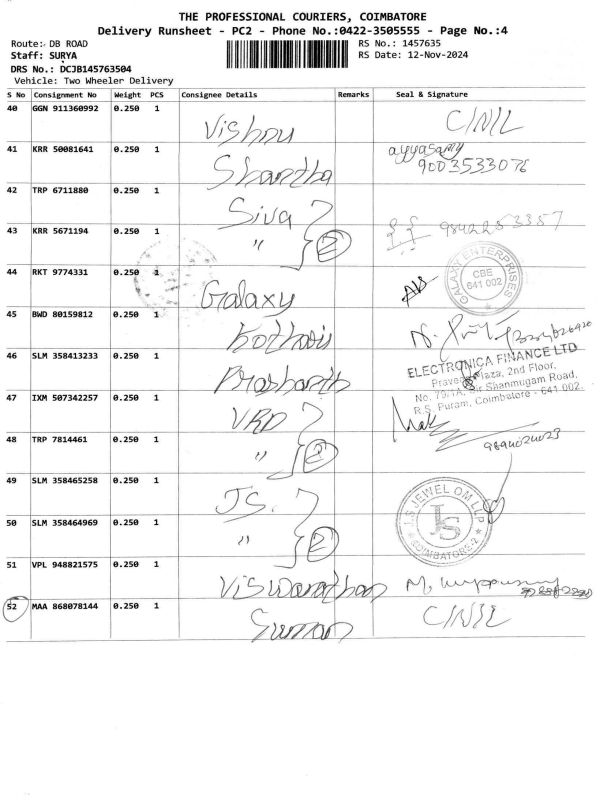 THE PROFESSIONAL COURIERS, COIMBATORE
Delivery Runsheet - PC2 - Phone No.:0422-3505555 - Page No.:4
Route: DB ROAD
RS No.: 1457635
Staff: SURYA
RS Date: 12-Nov-2024
DRS No.: DCJB145763504
Vehicle: Two Wheeler Delivery
S No Consignment No Weight PCS Consignee Details Remarks Seal & Signature
40 GGN 911360992 0.250 1 Vishnu C/NIL
41 KRR 50081641 0.250 1 Shardha ayyasamy
9003533076
42 TRP 6711880 0.250 1 Siva
43 KRR 5671194 0.250 1 " 2 9842253357
44 RKT 9774331 0.250 1 Galaxy
GALAXY ENTERPRISES
CBE
641 002
45 BWD 80159812 0.250 1 Kothari
46 SLM 358413233 0.250 1 Prashanth
ELECTRONICA FINANCE LTD
Plaza, 2nd Floor,
No. 79/1A, Sir Shanmugam Road,
R.S. Puram, Coimbatore - 641 002.
47 IXM 507342257 0.250 1 VRD
48 TRP 7814461 0.250 1 " 2
49 SLM 358465258 0.250 1 JS.
50 SLM 358464969 0.250 1 " 2
JS JEWEL OM LLP
JS
COIMBATORE-2
51 VPL 948821575 0.250 1 Viswanathan
52 MAA 868078144 0.250 1 Suman C/NIL